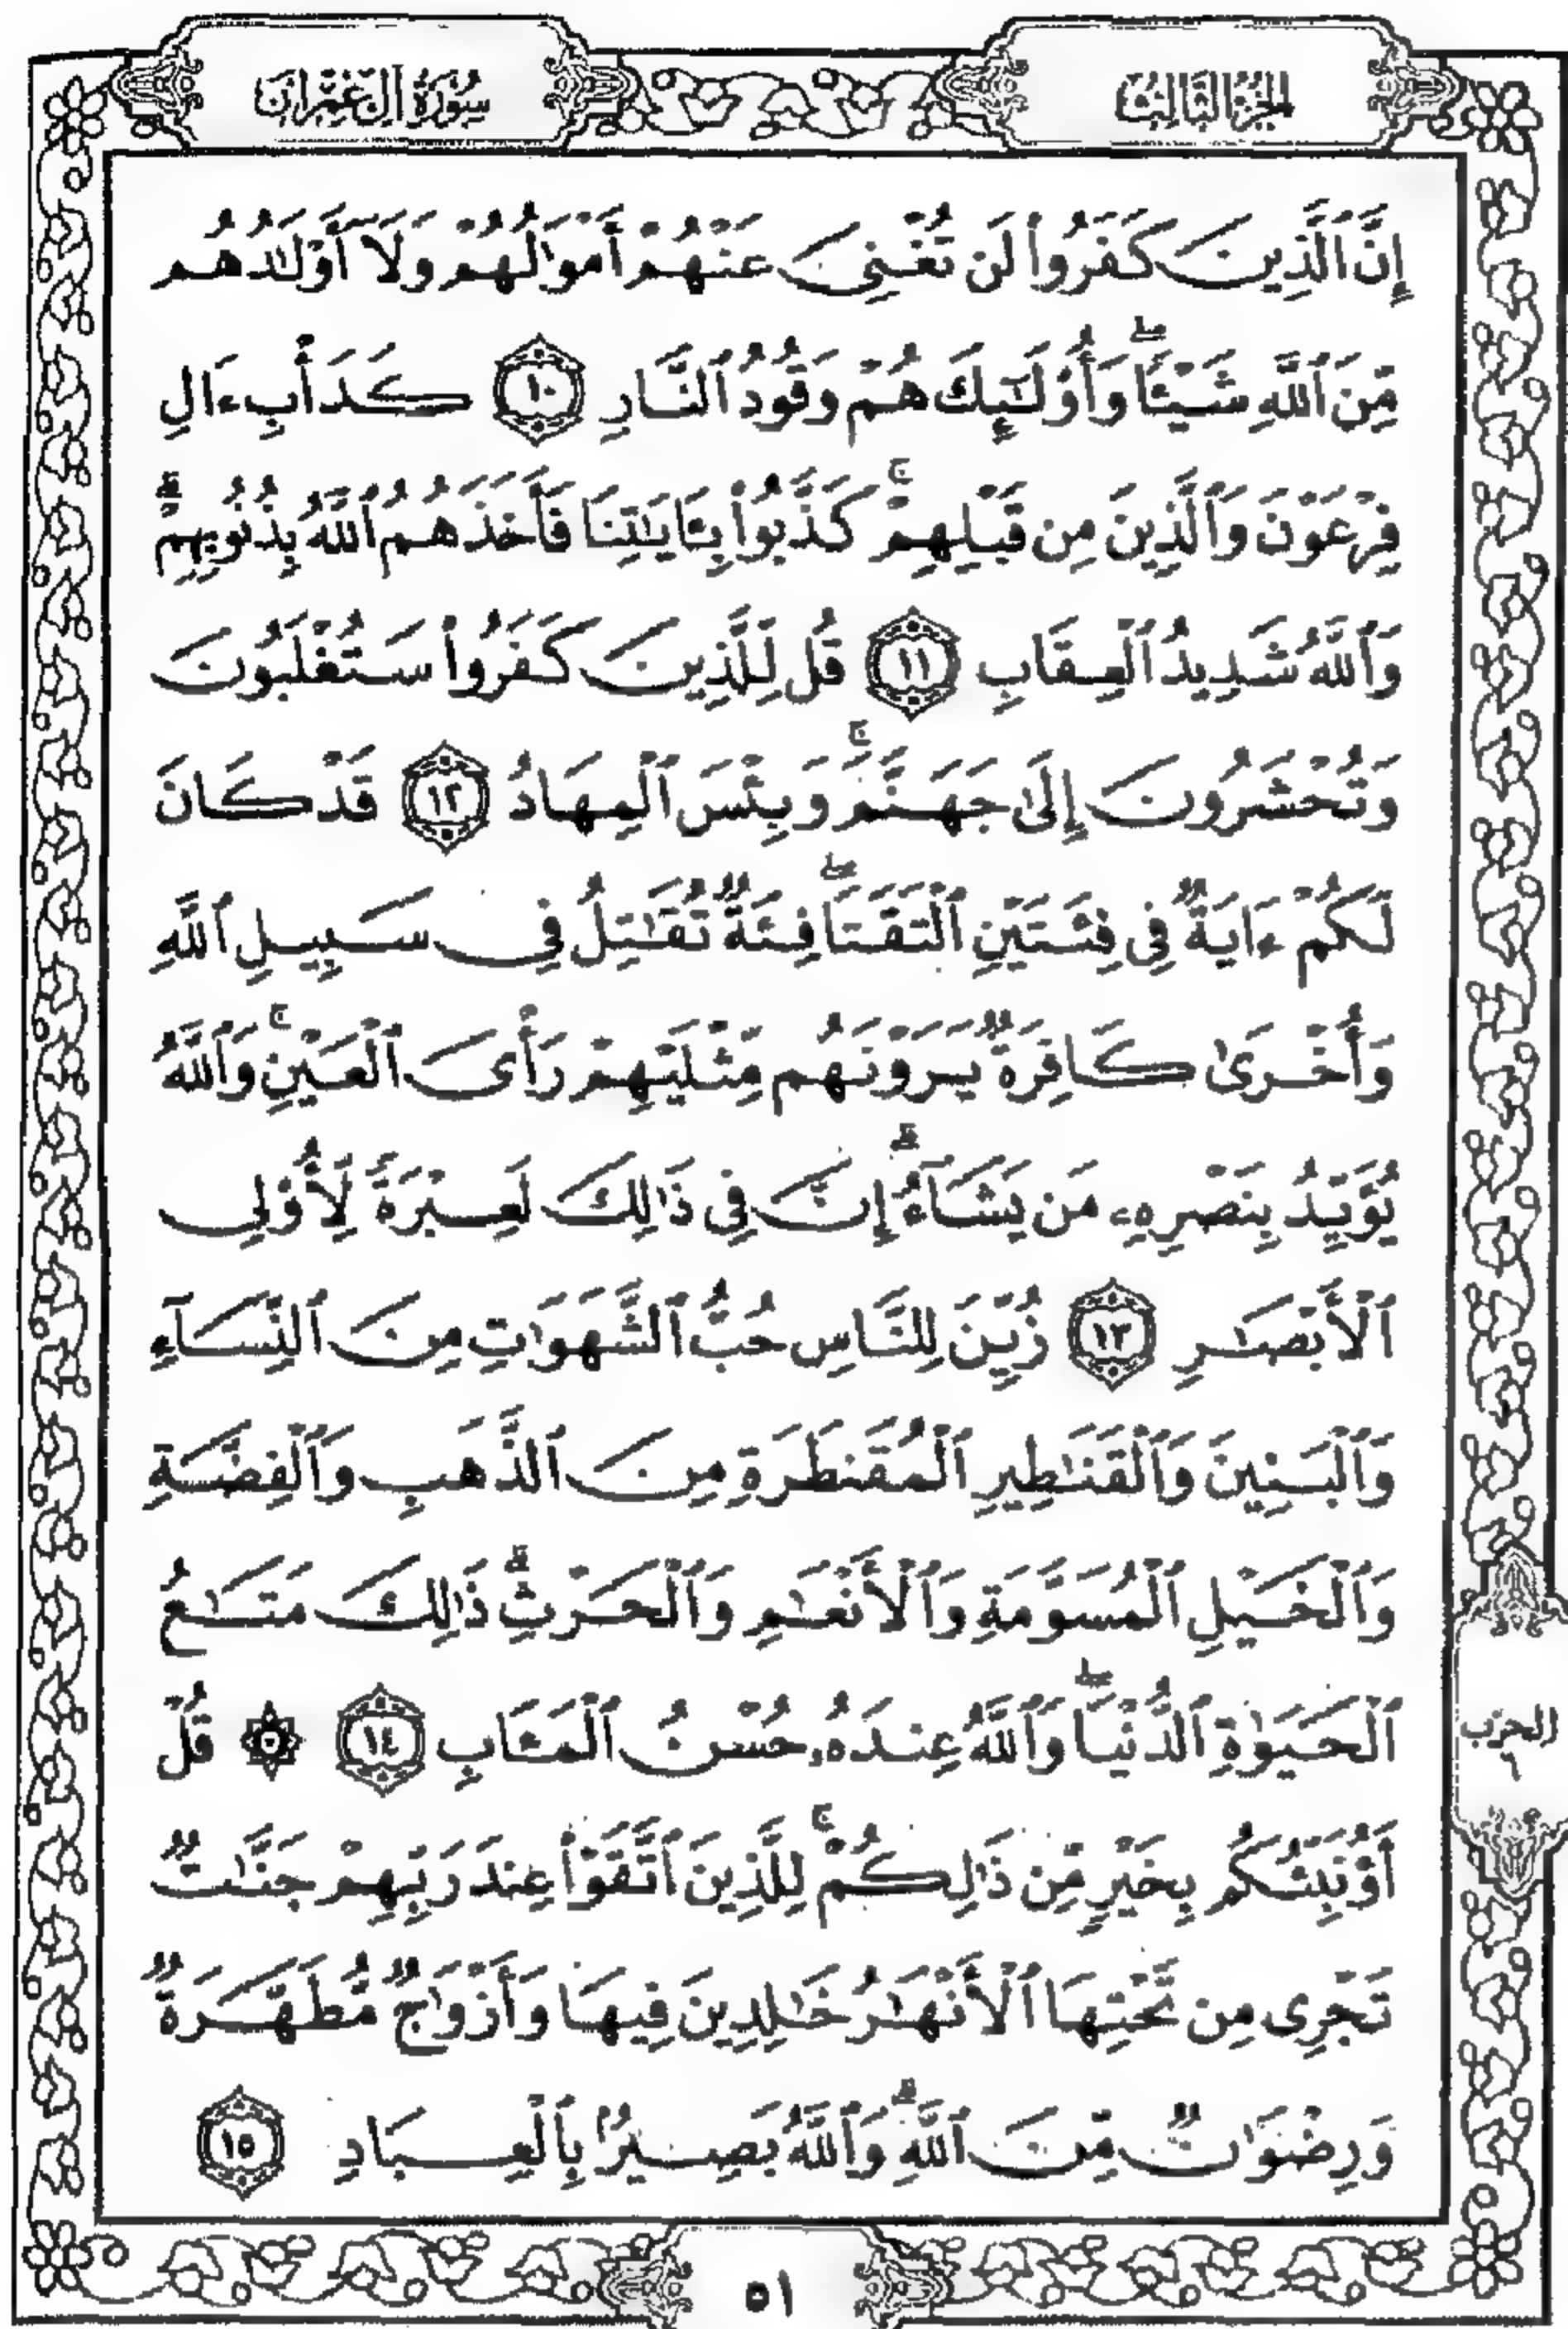 الجزء الثالث
سورة آل عمران
إِنَّ ٱلَّذِينَ كَفَرُوا۟ لَن تُغْنِىَ عَنْهُمْ أَمْوَٰلُهُمْ وَلَآ أَوْلَٰدُهُم
مِّنَ ٱللَّهِ شَيْـًٔا ۖ وَأُو۟لَٰٓئِكَ هُمْ وَقُودُ ٱلنَّارِ ١٠ كَدَأْبِ ءَالِ
فِرْعَوْنَ وَٱلَّذِينَ مِن قَبْلِهِمْ ۚ كَذَّبُوا۟ بِـَٔايَٰتِنَا فَأَخَذَهُمُ ٱللَّهُ بِذُنُوبِهِمْ ۗ
وَٱللَّهُ شَدِيدُ ٱلْعِقَابِ ١١ قُل لِّلَّذِينَ كَفَرُوا۟ سَتُغْلَبُونَ
وَتُحْشَرُونَ إِلَىٰ جَهَنَّمَ ۚ وَبِئْسَ ٱلْمِهَادُ ١٢ قَدْ كَانَ
لَكُمْ ءَايَةٌ فِى فِئَتَيْنِ ٱلْتَقَتَا ۖ فِئَةٌ تُقَٰتِلُ فِى سَبِيلِ ٱللَّهِ
وَأُخْرَىٰ كَافِرَةٌ يَرَوْنَهُم مِّثْلَيْهِمْ رَأْىَ ٱلْعَيْنِ ۚ وَٱللَّهُ
يُؤَيِّدُ بِنَصْرِهِۦ مَن يَشَآءُ ۗ إِنَّ فِى ذَٰلِكَ لَعِبْرَةً لِّأُو۟لِى
ٱلْأَبْصَٰرِ ١٣ زُيِّنَ لِلنَّاسِ حُبُّ ٱلشَّهَوَٰتِ مِنَ ٱلنِّسَآءِ
وَٱلْبَنِينَ وَٱلْقَنَٰطِيرِ ٱلْمُقَنطَرَةِ مِنَ ٱلذَّهَبِ وَٱلْفِضَّةِ
وَٱلْخَيْلِ ٱلْمُسَوَّمَةِ وَٱلْأَنْعَٰمِ وَٱلْحَرْثِ ۗ ذَٰلِكَ مَتَٰعُ
ٱلْحَيَوٰةِ ٱلدُّنْيَا ۖ وَٱللَّهُ عِندَهُۥ حُسْنُ ٱلْمَـَٔابِ ١٤ ۞ قُلْ
أَؤُنَبِّئُكُم بِخَيْرٍ مِّن ذَٰلِكُمْ ۚ لِلَّذِينَ ٱتَّقَوْا۟ عِندَ رَبِّهِمْ جَنَّٰتٌ
تَجْرِى مِن تَحْتِهَا ٱلْأَنْهَٰرُ خَٰلِدِينَ فِيهَا وَأَزْوَٰجٌ مُّطَهَّرَةٌ
وَرِضْوَٰنٌ مِّنَ ٱللَّهِ ۗ وَٱللَّهُ بَصِيرٌۢ بِٱلْعِبَادِ ١٥
الحزب
٦
٥١